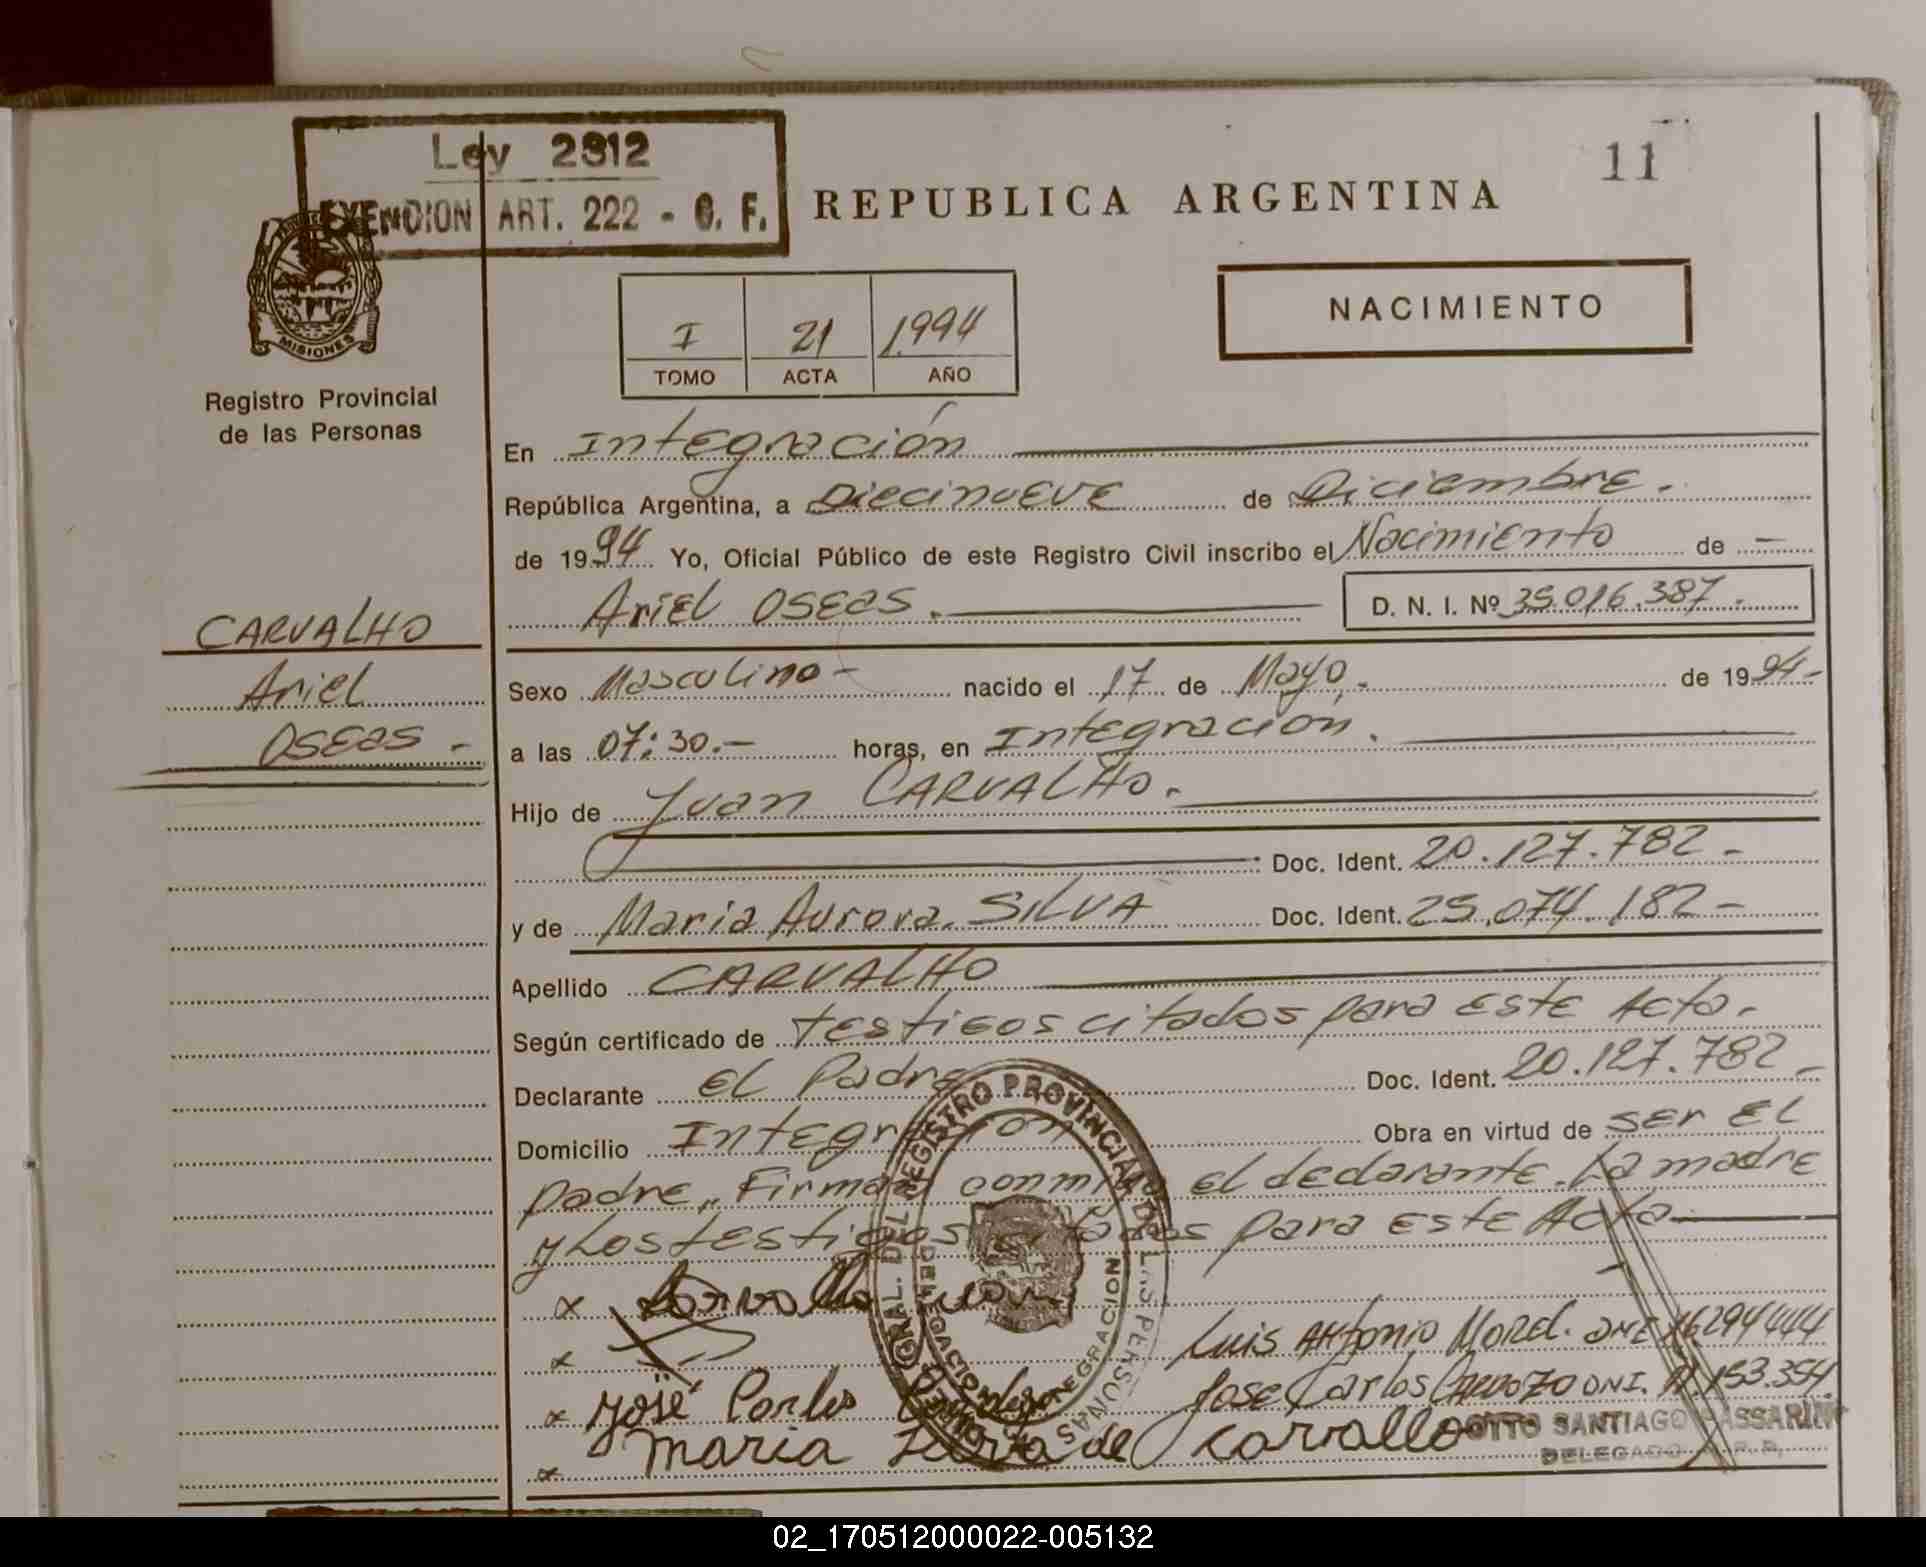 11
Ley 2312
EXENCION ART. 222 - C. F.
REPUBLICA ARGENTINA
NACIMIENTO
MISIONES
Registro Provincial
de las Personas
I 21 1.994
TOMO ACTA AÑO
CARVALHO
Ariel
OSEAS.-
En Integración
República Argentina, a Diecinueve de Diciembre.
de 1994 Yo, Oficial Público de este Registro Civil inscribo el Nacimiento de -
Ariel OSEAS. D. N. I. Nº 35.016.387.
Sexo Masculino - nacido el 17 de Mayo. de 1994-
a las 07:30.- horas, en Integración.
Hijo de Juan CARVALHO.
Doc. Ident. 20.127.782-
y de Maria Aurora. SILVA Doc. Ident. 25.074.182-
Apellido CARVALHO
Según certificado de testigos citados para este Acta.
Declarante el Padre Doc. Ident. 20.127.782-
Domicilio Integración Obra en virtud de ser el
padre,, Firman conmigo el declarante. La madre
y Los testigos citados para este Acta
x Carvallo Juan
x Luis Antonio Morel. DNI 16294444
x José Carlos Jose Carlos Cardozo DNI. 11.153.354
x maria de Carvallo
OTTO SANTIAGO PASSARINI
DELEGADO R. P. P.
GRAL. DEL REGISTRO PROVINCIAL DE LAS PERSONAS
DELEGACION INTEGRACION
02_170512000022-005132